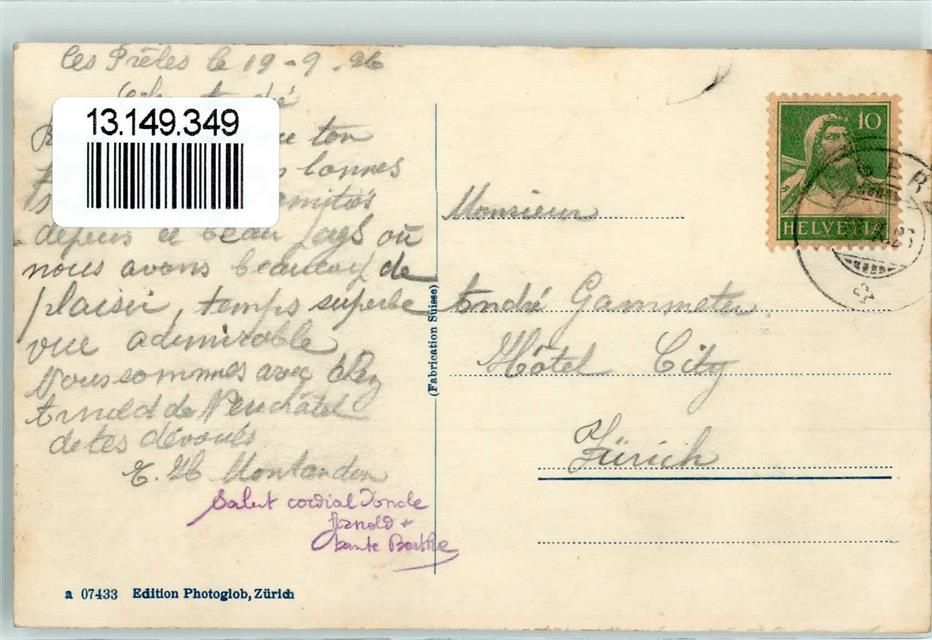 Les Prêles le 19-9-26
13.149.349
ton
bonnes
amitiés
depuis ce beau pays où
nous avons beaucoup de
plaisir, temps superbe
vue admirable
Nous sommes avec
Arnold de Neuchâtel
de tes dévoués
E. H Montandon
Salut cordial Oncle
Arnold +
tante Berthe
a 07433 Edition Photoglob, Zürich
(Fabrication Suisse)
10
HELVETIA
Monsieur
André Gammeter
Hôtel City
Zürich